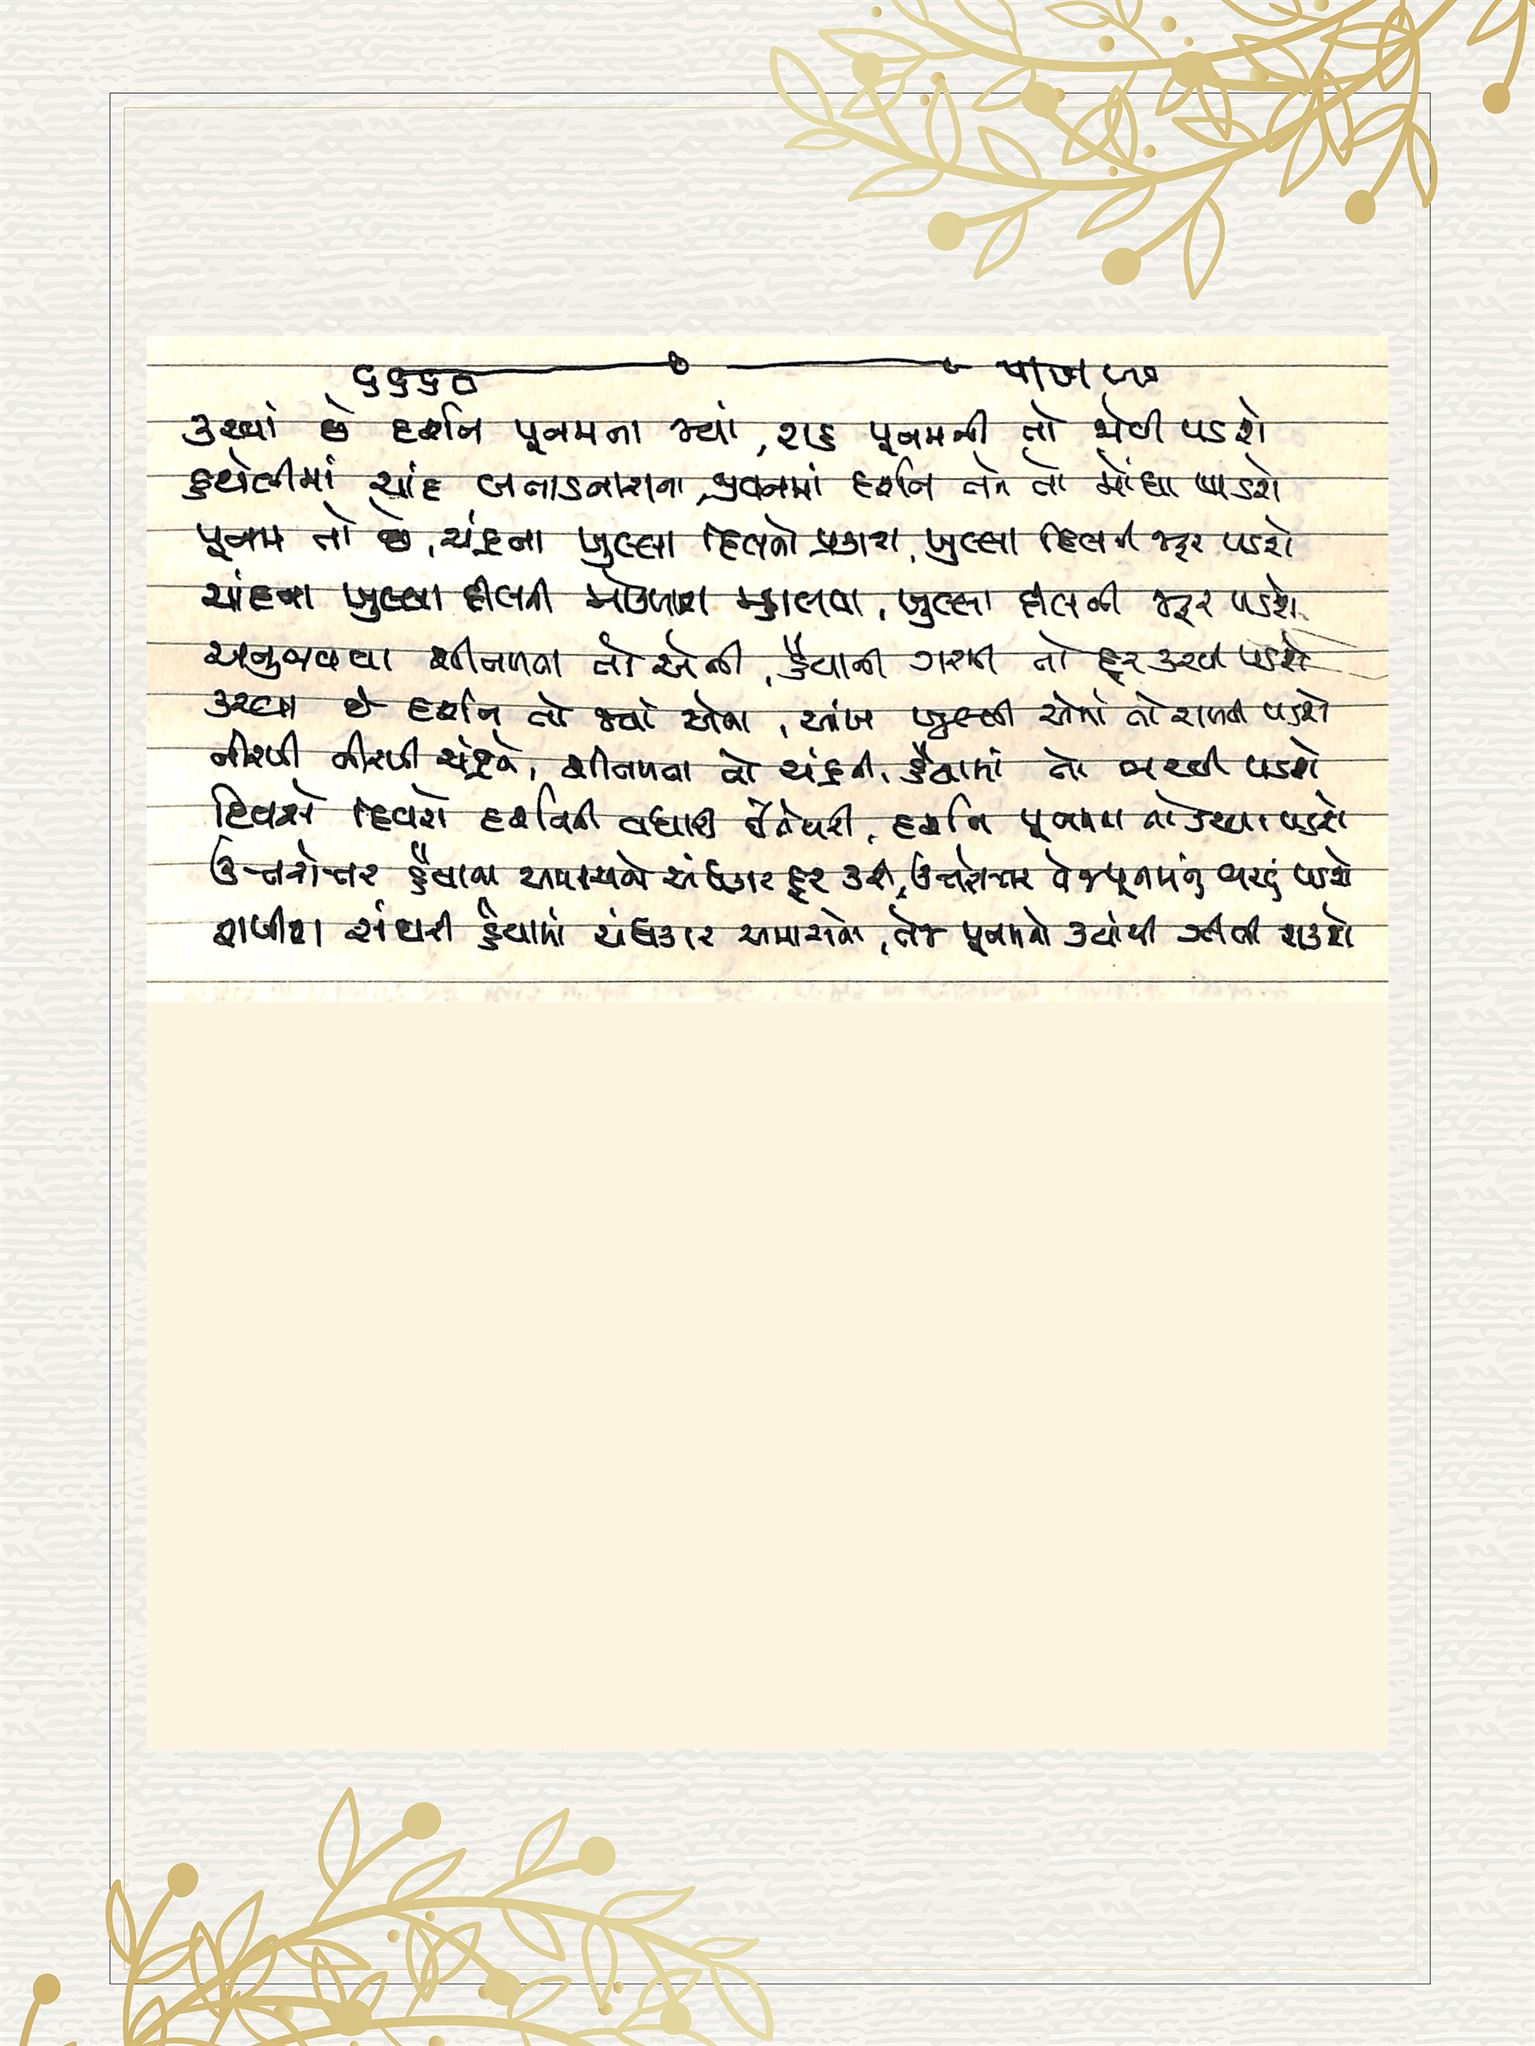 ૬૬૬૦
કરવાં છે દર્શન પૂનમના જ્યાં, રાહ પૂનમની તો જોવી પડશે
હથેલીમાં ચાંદ બતાડનારાના, જીવનમાં દર્શન તને તો મોંઘા પડશે
પૂનમ તો છે, ચંદ્રના ખુલ્લા દિલનો પ્રકાશ, ખુલ્લા દિલની જરૂર પડશે
ચાંદના ખુલ્લા દીલની મોકળાશ માણવા, ખુલ્લા દીલની જરૂર પડશે
અનુભવવા શીતળતા તો એની, હૈયાની ગરમી તો દૂર કરવી પડશે
કરવા છે દર્શન તો જ્યાં એના, આંખ ખુલ્લી એમાં તો રાખવી પડશે
નીરખી નીરખી ચંદ્રને, શીતળતા તો ચંદ્રની, હૈયામાં તો ભરવી પડશે
દિવસે દિવસે દર્શનની વધારી તૈયારી, દર્શન પૂનમના તો કરવા પડશે
ઉત્તરોત્તર હૈયાના અમાસનો અંધકાર દૂર કરી, ઉત્તરોત્તર તેજ પૂનમનું ભરવું પડશે
રાખીશ સંઘરી હૈયામાં અંધકાર અમાસનો, તેજ પૂનમનો ક્યાંથી ઝીલી શકશે